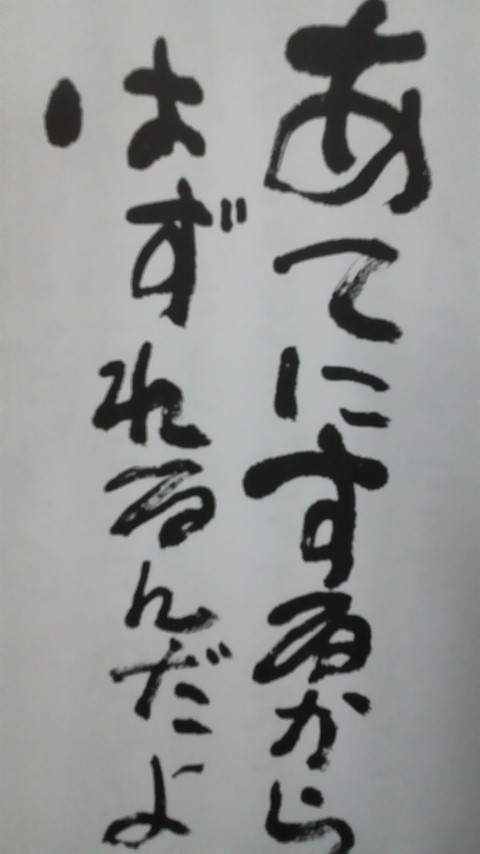 あてにするから
はずれるんだよ